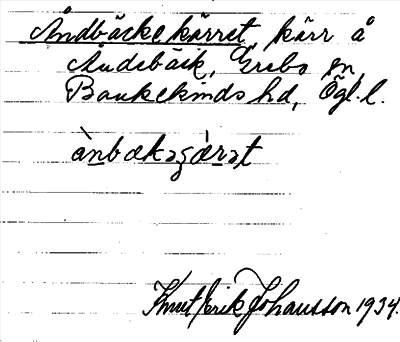 Åndbäckekärret, kärr å
Åndebäck, Grebo sn,
Bankekinds hd, Ögl. l.
ànbækəɕæ̀rət
Knut Erik Johansson 1934.